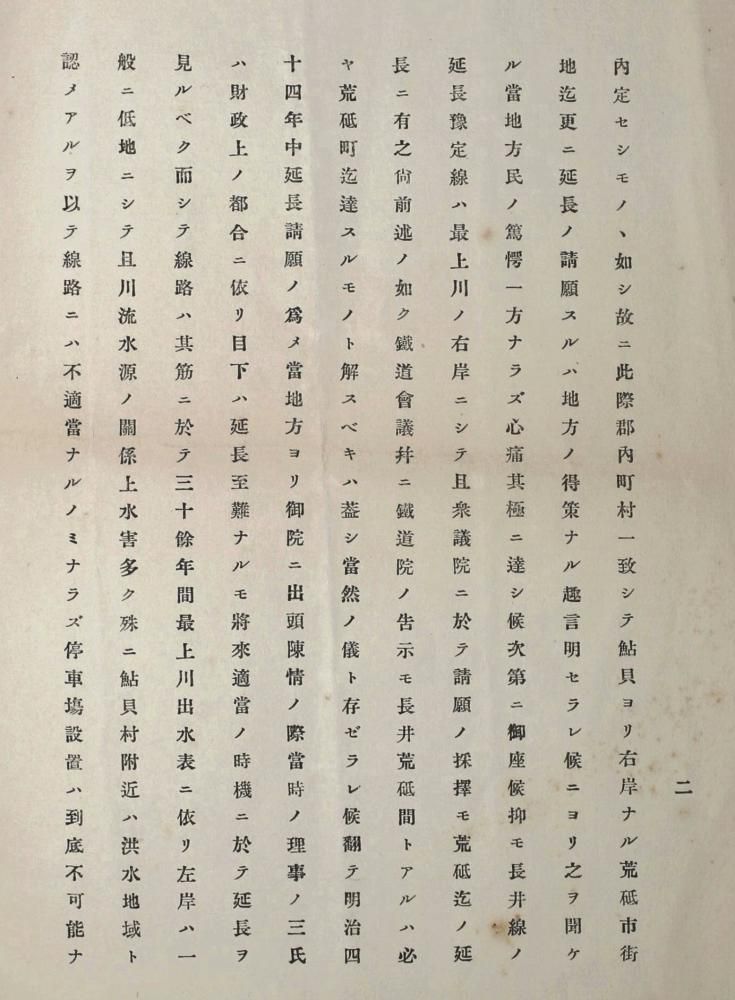 二
內定セシモノヽ如シ故ニ此際郡內町村一致シテ鮎貝ヨリ右岸ナル荒砥市街
地迄更ニ延長ノ請願スルハ地方ノ得策ナル趣言明セラレ候ニヨリ之ヲ聞ケ
ル當地方民ノ篤愕一方ナラズ心痛其極ニ達シ候次第ニ御座候抑モ長井線ノ
延長豫定線ハ最上川ノ右岸ニシテ且衆議院ニ於テ請願ノ採擇モ荒砥迄ノ延
長ニ有之尙前述ノ如ク鐵道會議幷ニ鐵道院ノ吿示モ長井荒砥間トアルハ必
ヤ荒砥町迄達スルモノト解スベキハ蓋シ當然ノ儀ト存ゼラレ候翻テ明治四
十四年中延長請願ノ爲メ當地方ヨリ御院ニ出頭陳情ノ際當時ノ理事ノ三氏
ハ財政上ノ都合ニ依リ目下ハ延長至難ナルモ將來適當ノ時機ニ於テ延長ヲ
見ルベク而シテ線路ハ其筋ニ於テ三十餘年間最上川出水表ニ依リ左岸ハ一
般ニ低地ニシテ且川流水源ノ關係上水害多ク殊ニ鮎貝村附近ハ洪水地域ト
認メアルヲ以テ線路ニハ不適當ナルノミナラズ停車塲設置ハ到底不可能ナ